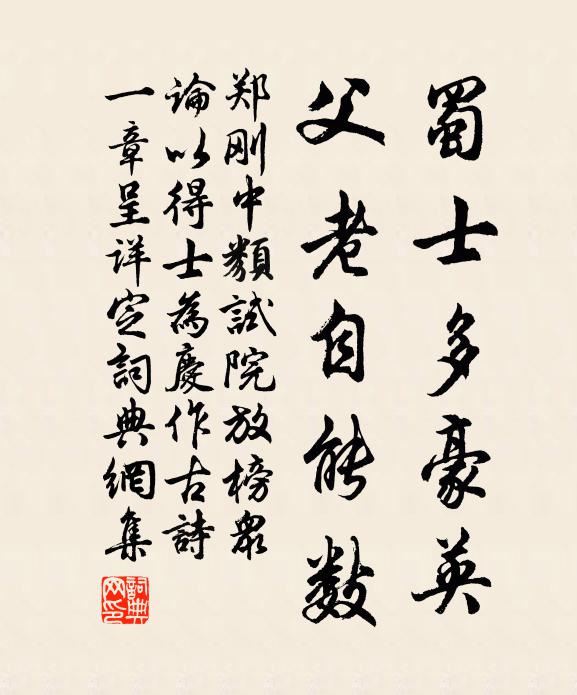 蜀士多豪英
父老自能数
郑刚中類試院放榜眾
論以得士為慶作古詩
一章呈详定詞典網集
詞典網印